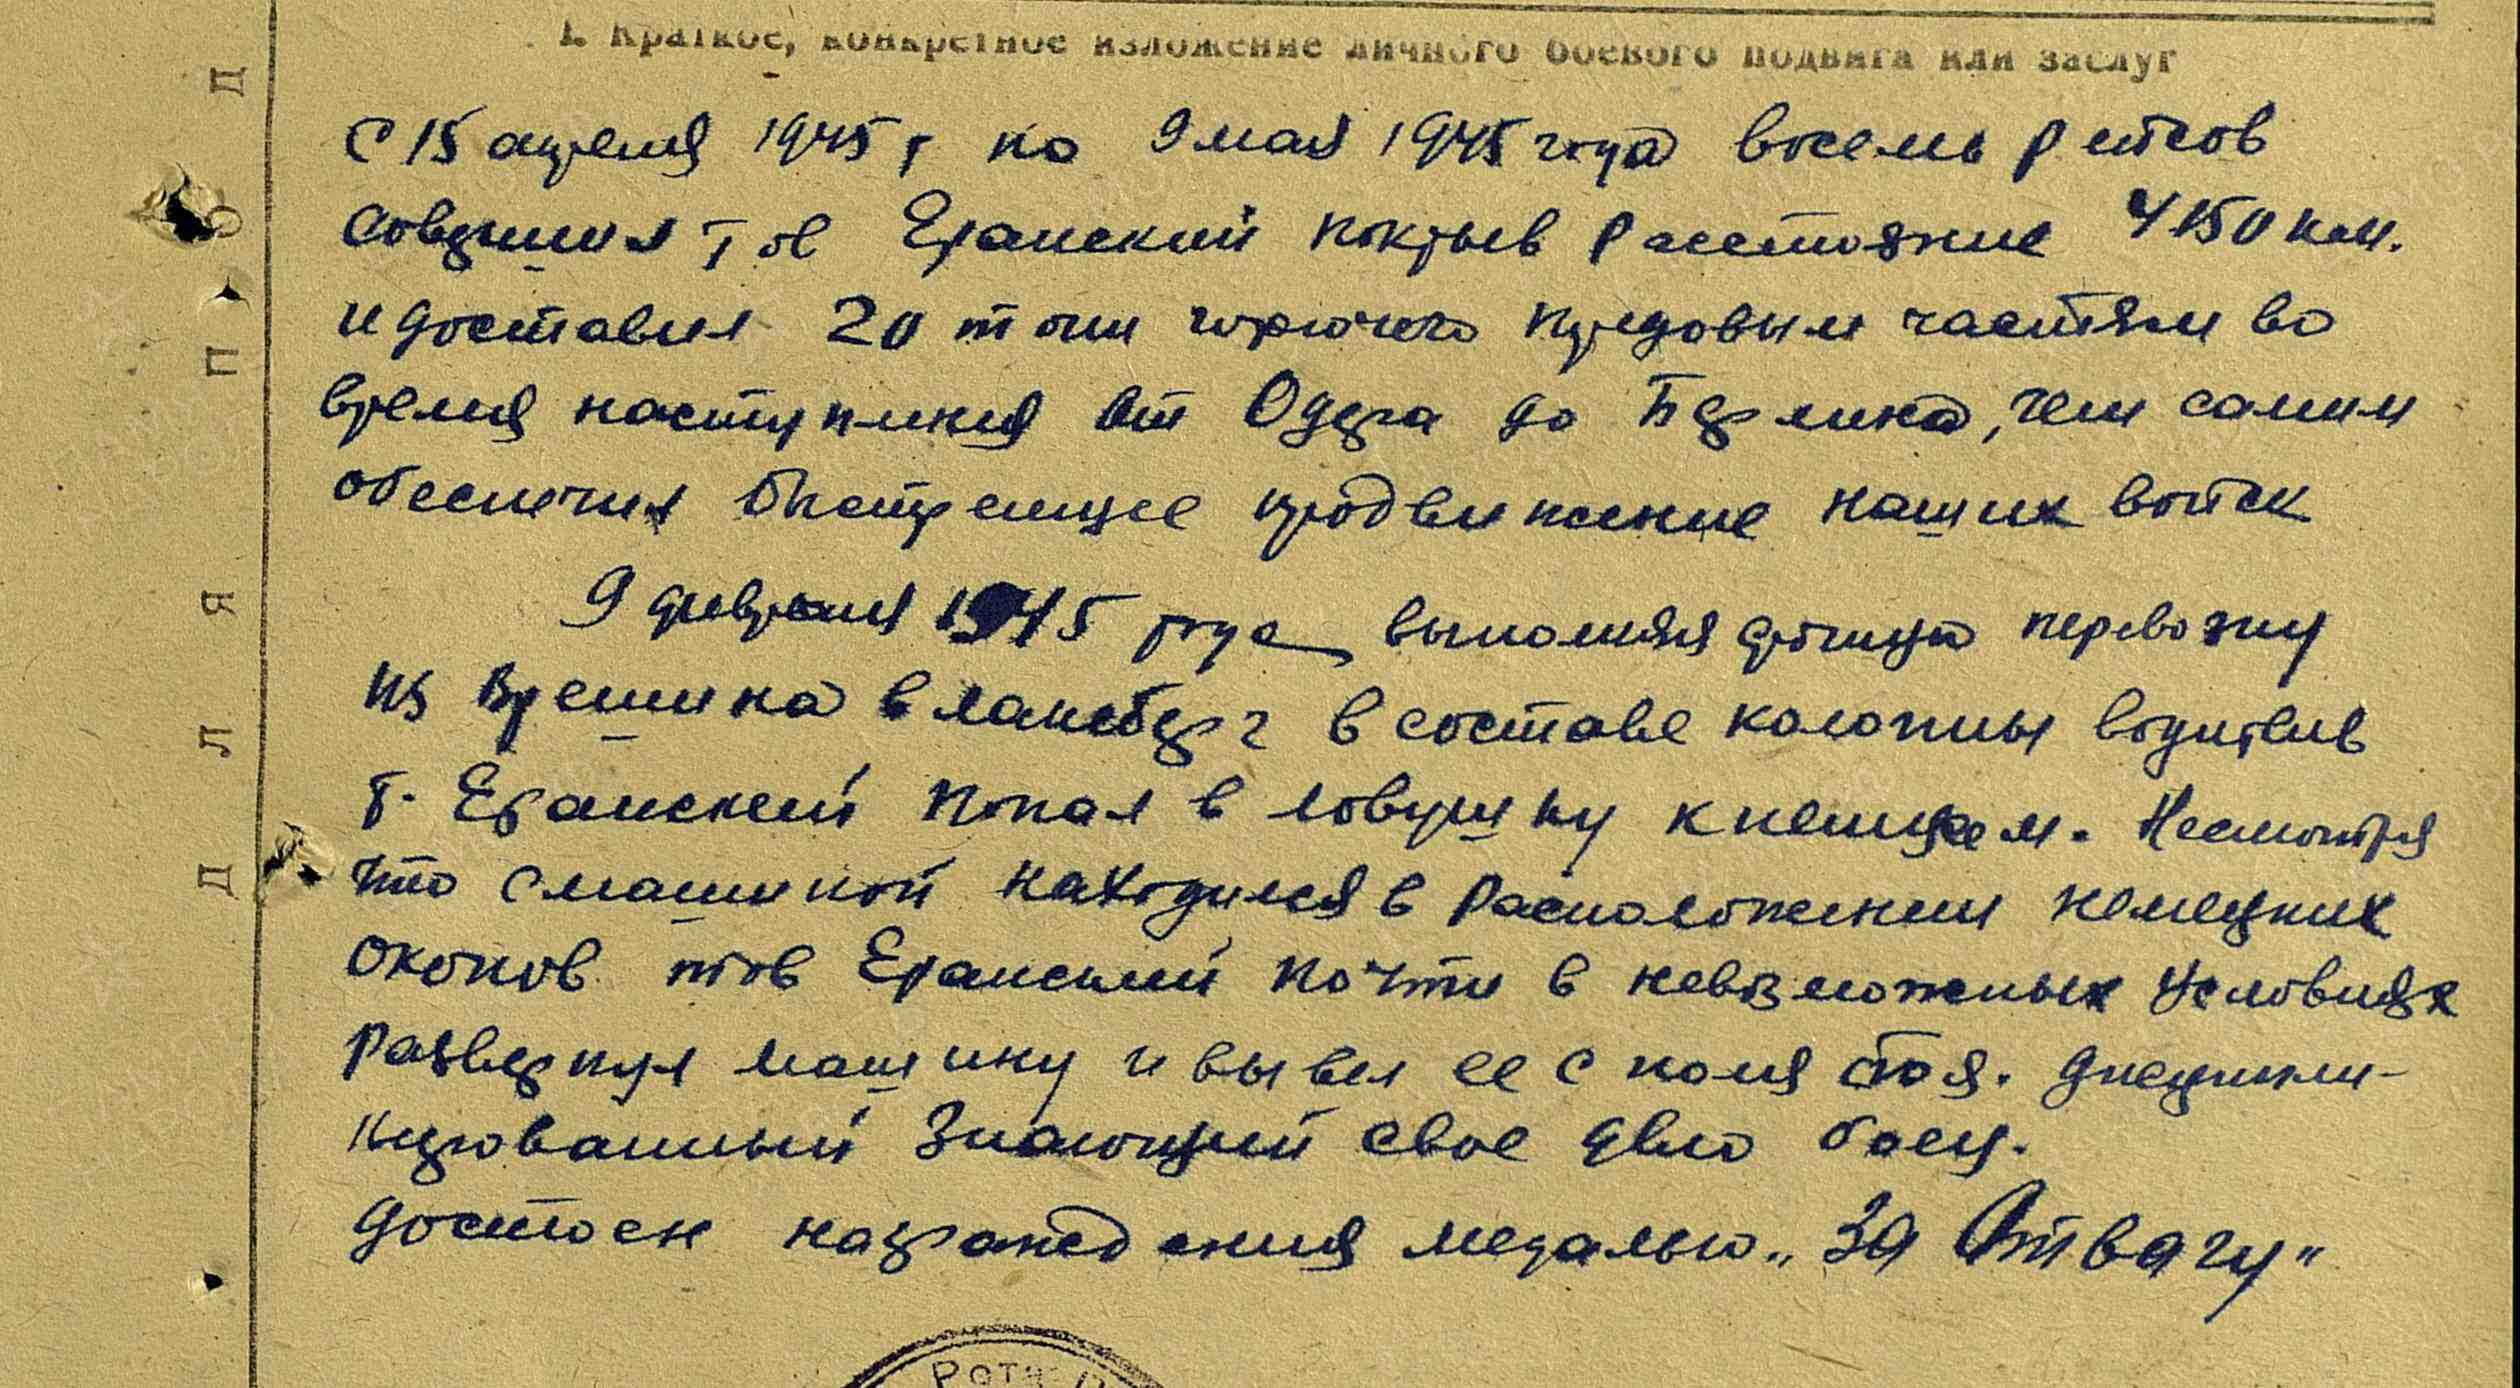 I. Краткое, конкретное изложение личного боевого подвига или заслуг
С 15 апреля 1945 г по 9 мая 1945 года восемь рейсов
совершил тов Еранский покрыв расстояние 4150 км.
и доставил 20 тонн горючего передовым частям во
время наступления от Одера до Берлина, чем самим
обеспечил быстрейшее продвижение наших войск
9 февраля 1945 года выполняя перевозку
из Врешина в Лансберг в составе колонны водителей
т. Еранский попал в ловушку к немцам. Несмотря
что с машиной находился в расположении немецких
окопов тов Еранский почти в невозможных условиях
развернул машину и вывел ее с поля боя. Дисципли-
нированный знающий свое дело боец.
Достоен награждения медалью „За Отвагу"
Рота
ДЛЯ ПОД